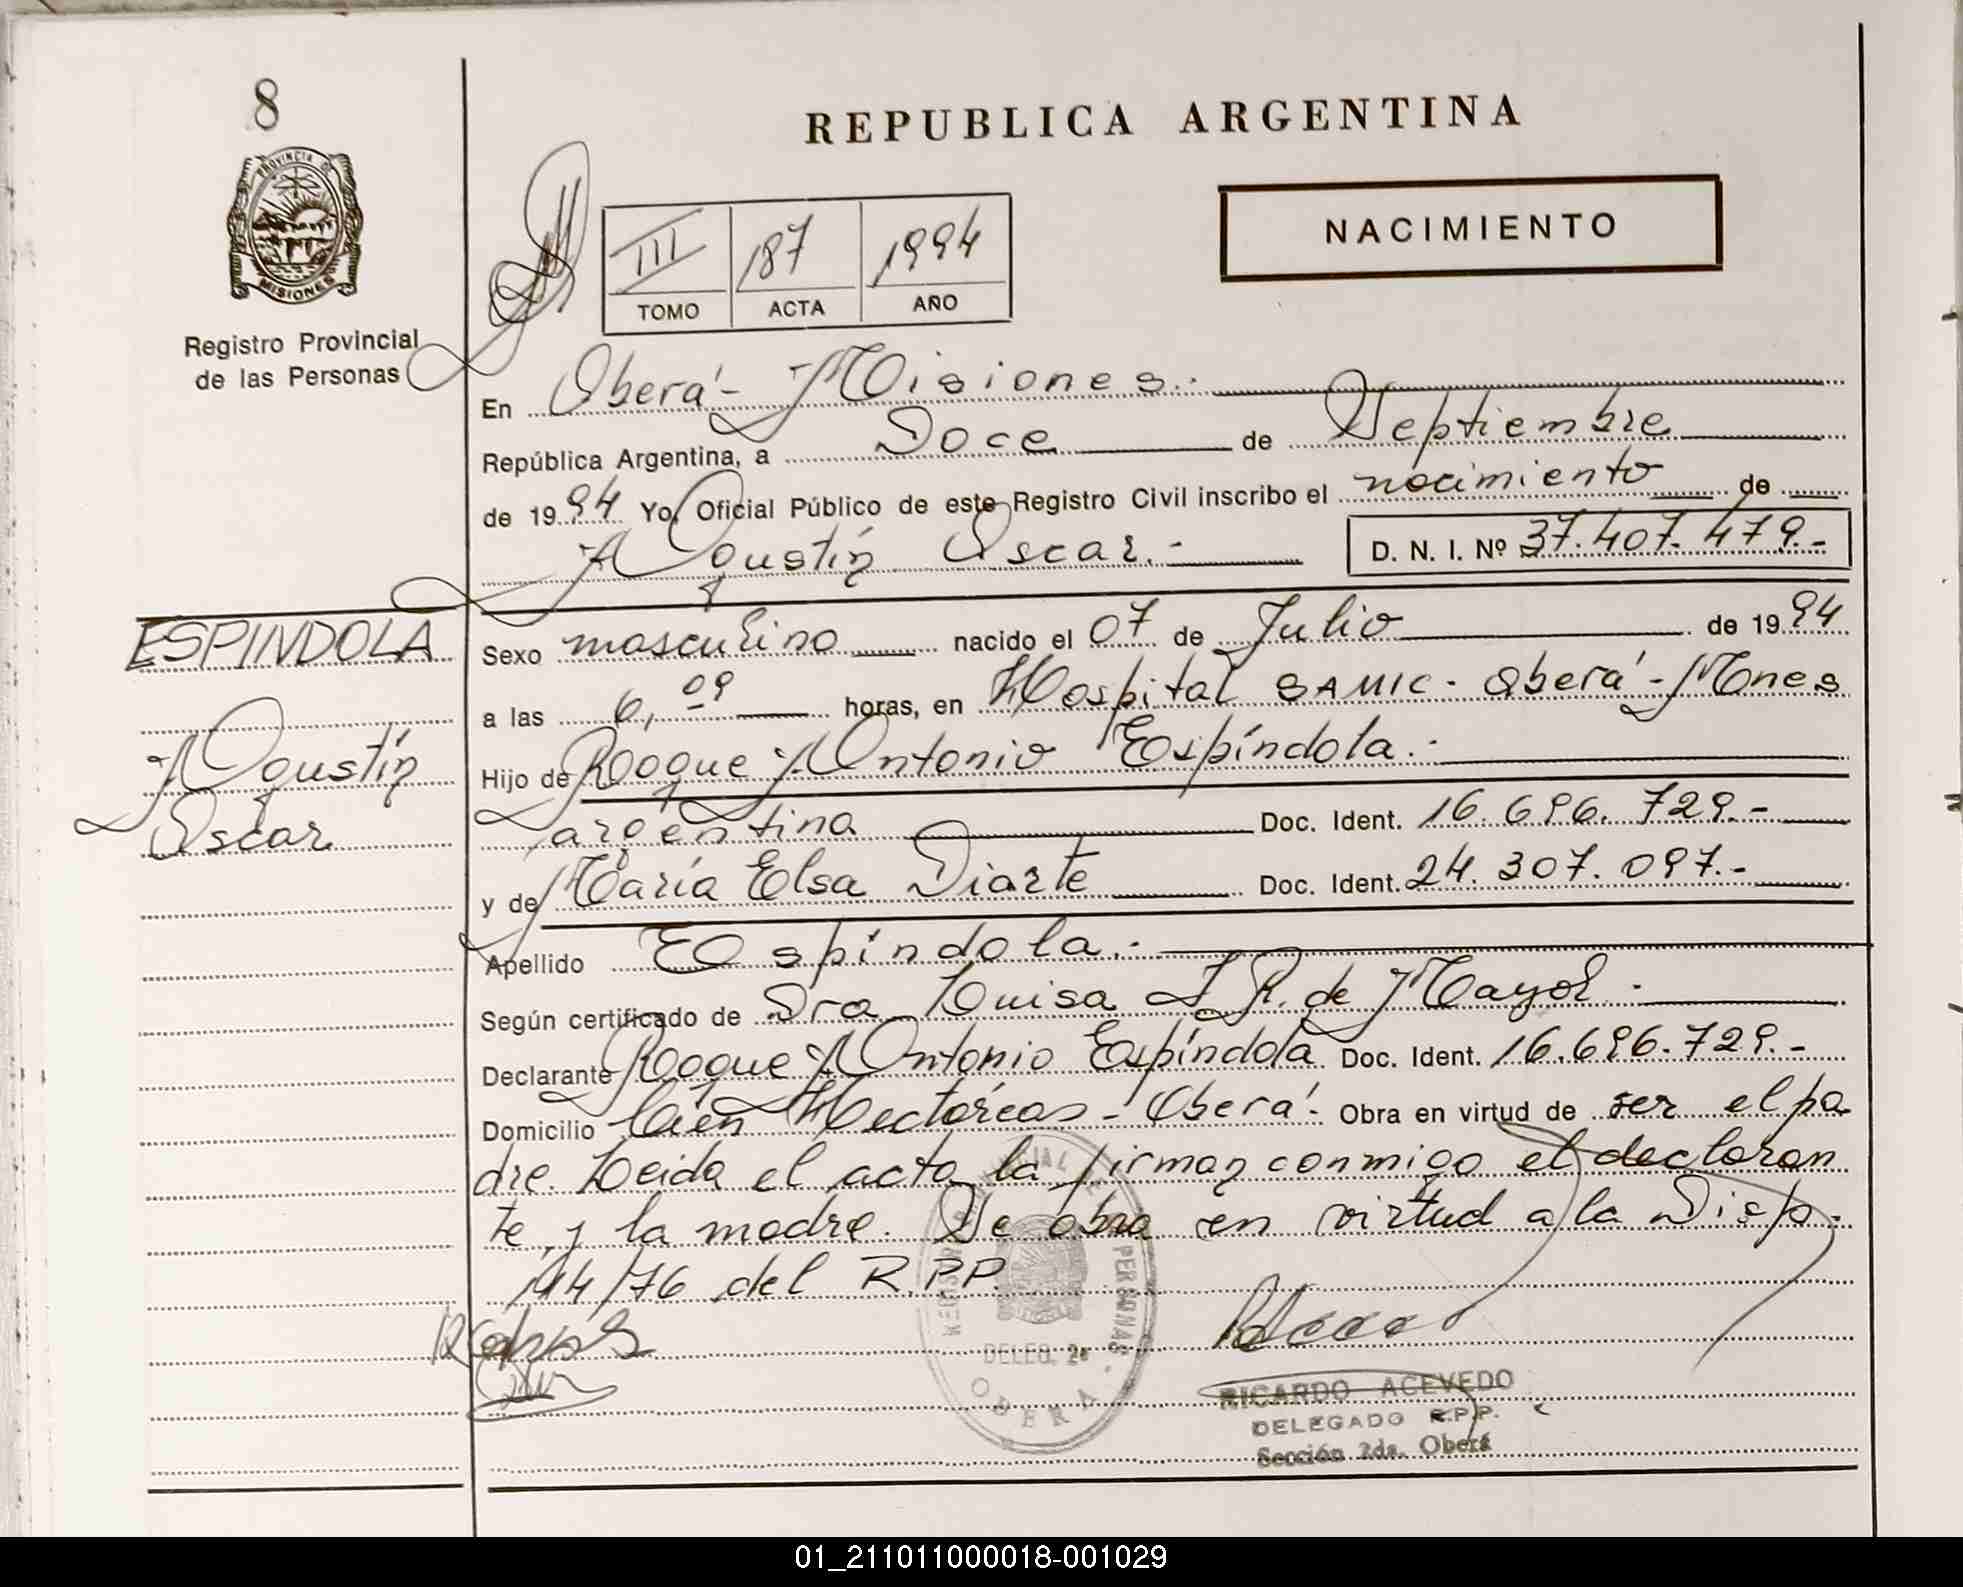 8
PROVINCIA DE
MISIONES
Registro Provincial
de las Personas
REPUBLICA ARGENTINA
NACIMIENTO
III 187 1994
TOMO ACTA AÑO
En Oberá - Misiones.-
República Argentina, a Doce de Septiembre
de 1994 Yo, Oficial Público de este Registro Civil inscribo el nacimiento de
Agustín Oscar.- D. N. I. Nº 37.407.479.-
ESPINDOLA
Agustín
Oscar
Sexo masculino nacido el 07 de Julio de 1994
a las 6,09 horas, en Hospital SAMIC - Oberá - Mnes
Hijo de Roque Antonio Espíndola.-
argentina Doc. Ident. 16.696.729.-
y de María Elsa Diarte Doc. Ident. 24.307.097.-
Apellido Espíndola.-
Según certificado de Dra Luisa I. R. de Mayol.-
Declarante Roque Antonio Espíndola Doc. Ident. 16.696.729.-
Domicilio Cien Hectáreas - Oberá.- Obra en virtud de ser el pa
dre. Leida el acta la firman conmigo el declaran
te y la madre. Se obra en virtud a la Disp.
144/76 del R.P.P.
PERSONAS
DELEG. 2ª
OBERA
RICARDO ACEVEDO
DELEGADO R.P.P.
Sección 2da. Oberá
01_211011000018-001029